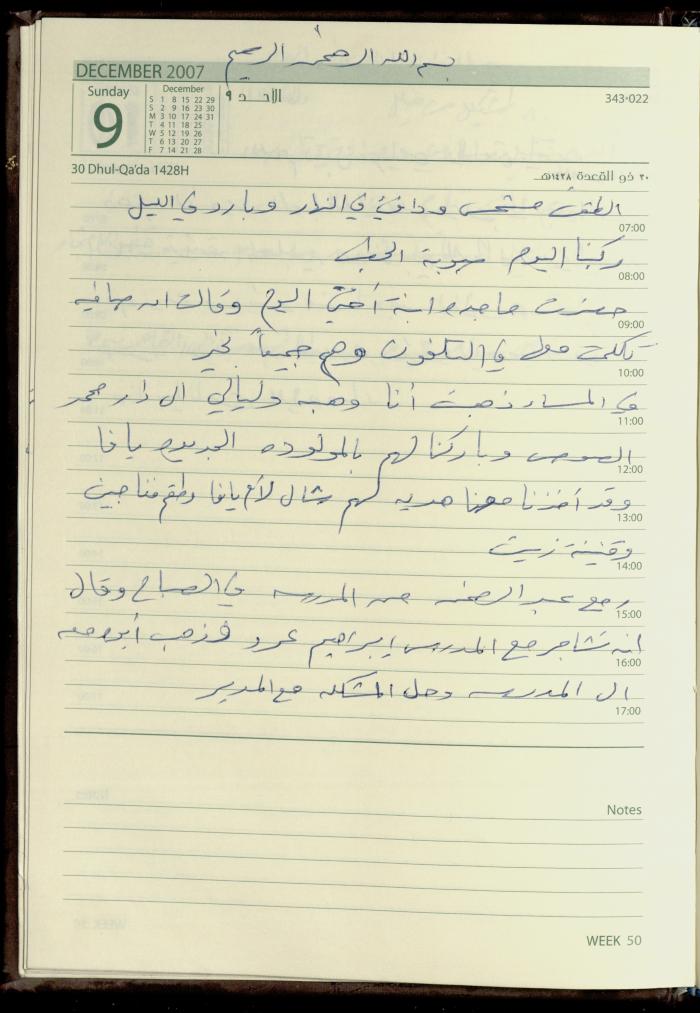 بسم الله الرحمن الرحيم
DECEMBER 2007
Sunday
9
December
S 1 8 15 22 29
S 2 9 16 23 30
M 3 10 17 24 31
T 4 11 18 25
W 5 12 19 26
T 6 13 20 27
F 7 14 21 28
الأحد ٩
343-022
30 Dhul-Qa'da 1428H
٣٠ ذو القعدة ١٤٢٨هـ
الطقس مشمس ودافئ في النهار وبارد في الليل
07:00
ركبنا اليوم صوبة الحطب
08:00
حضرت ماجده ابنة أختي اليوم وقالت انه صافيه
09:00
تكلمت معها في التلفون وهم جميعاً بخير
10:00
في المساء ذهبت أنا وهبه وليالي الى دار محمد
11:00
الصوص وباركنا لهم بالمولوده الجديده يافا
12:00
وقد أخذنا معنا هديه لهم شال لأم يافا وطقم فناجين
13:00
وقنينة زيت
14:00
رجع عبد الرحمن من المدرسه في الصباح وقال
15:00
انه تشاجر مع المدرس ابراهيم عمرو فذهب أبو
16:00
الى المدرسه وحل المشكله مع المدير
17:00
Notes
WEEK 50